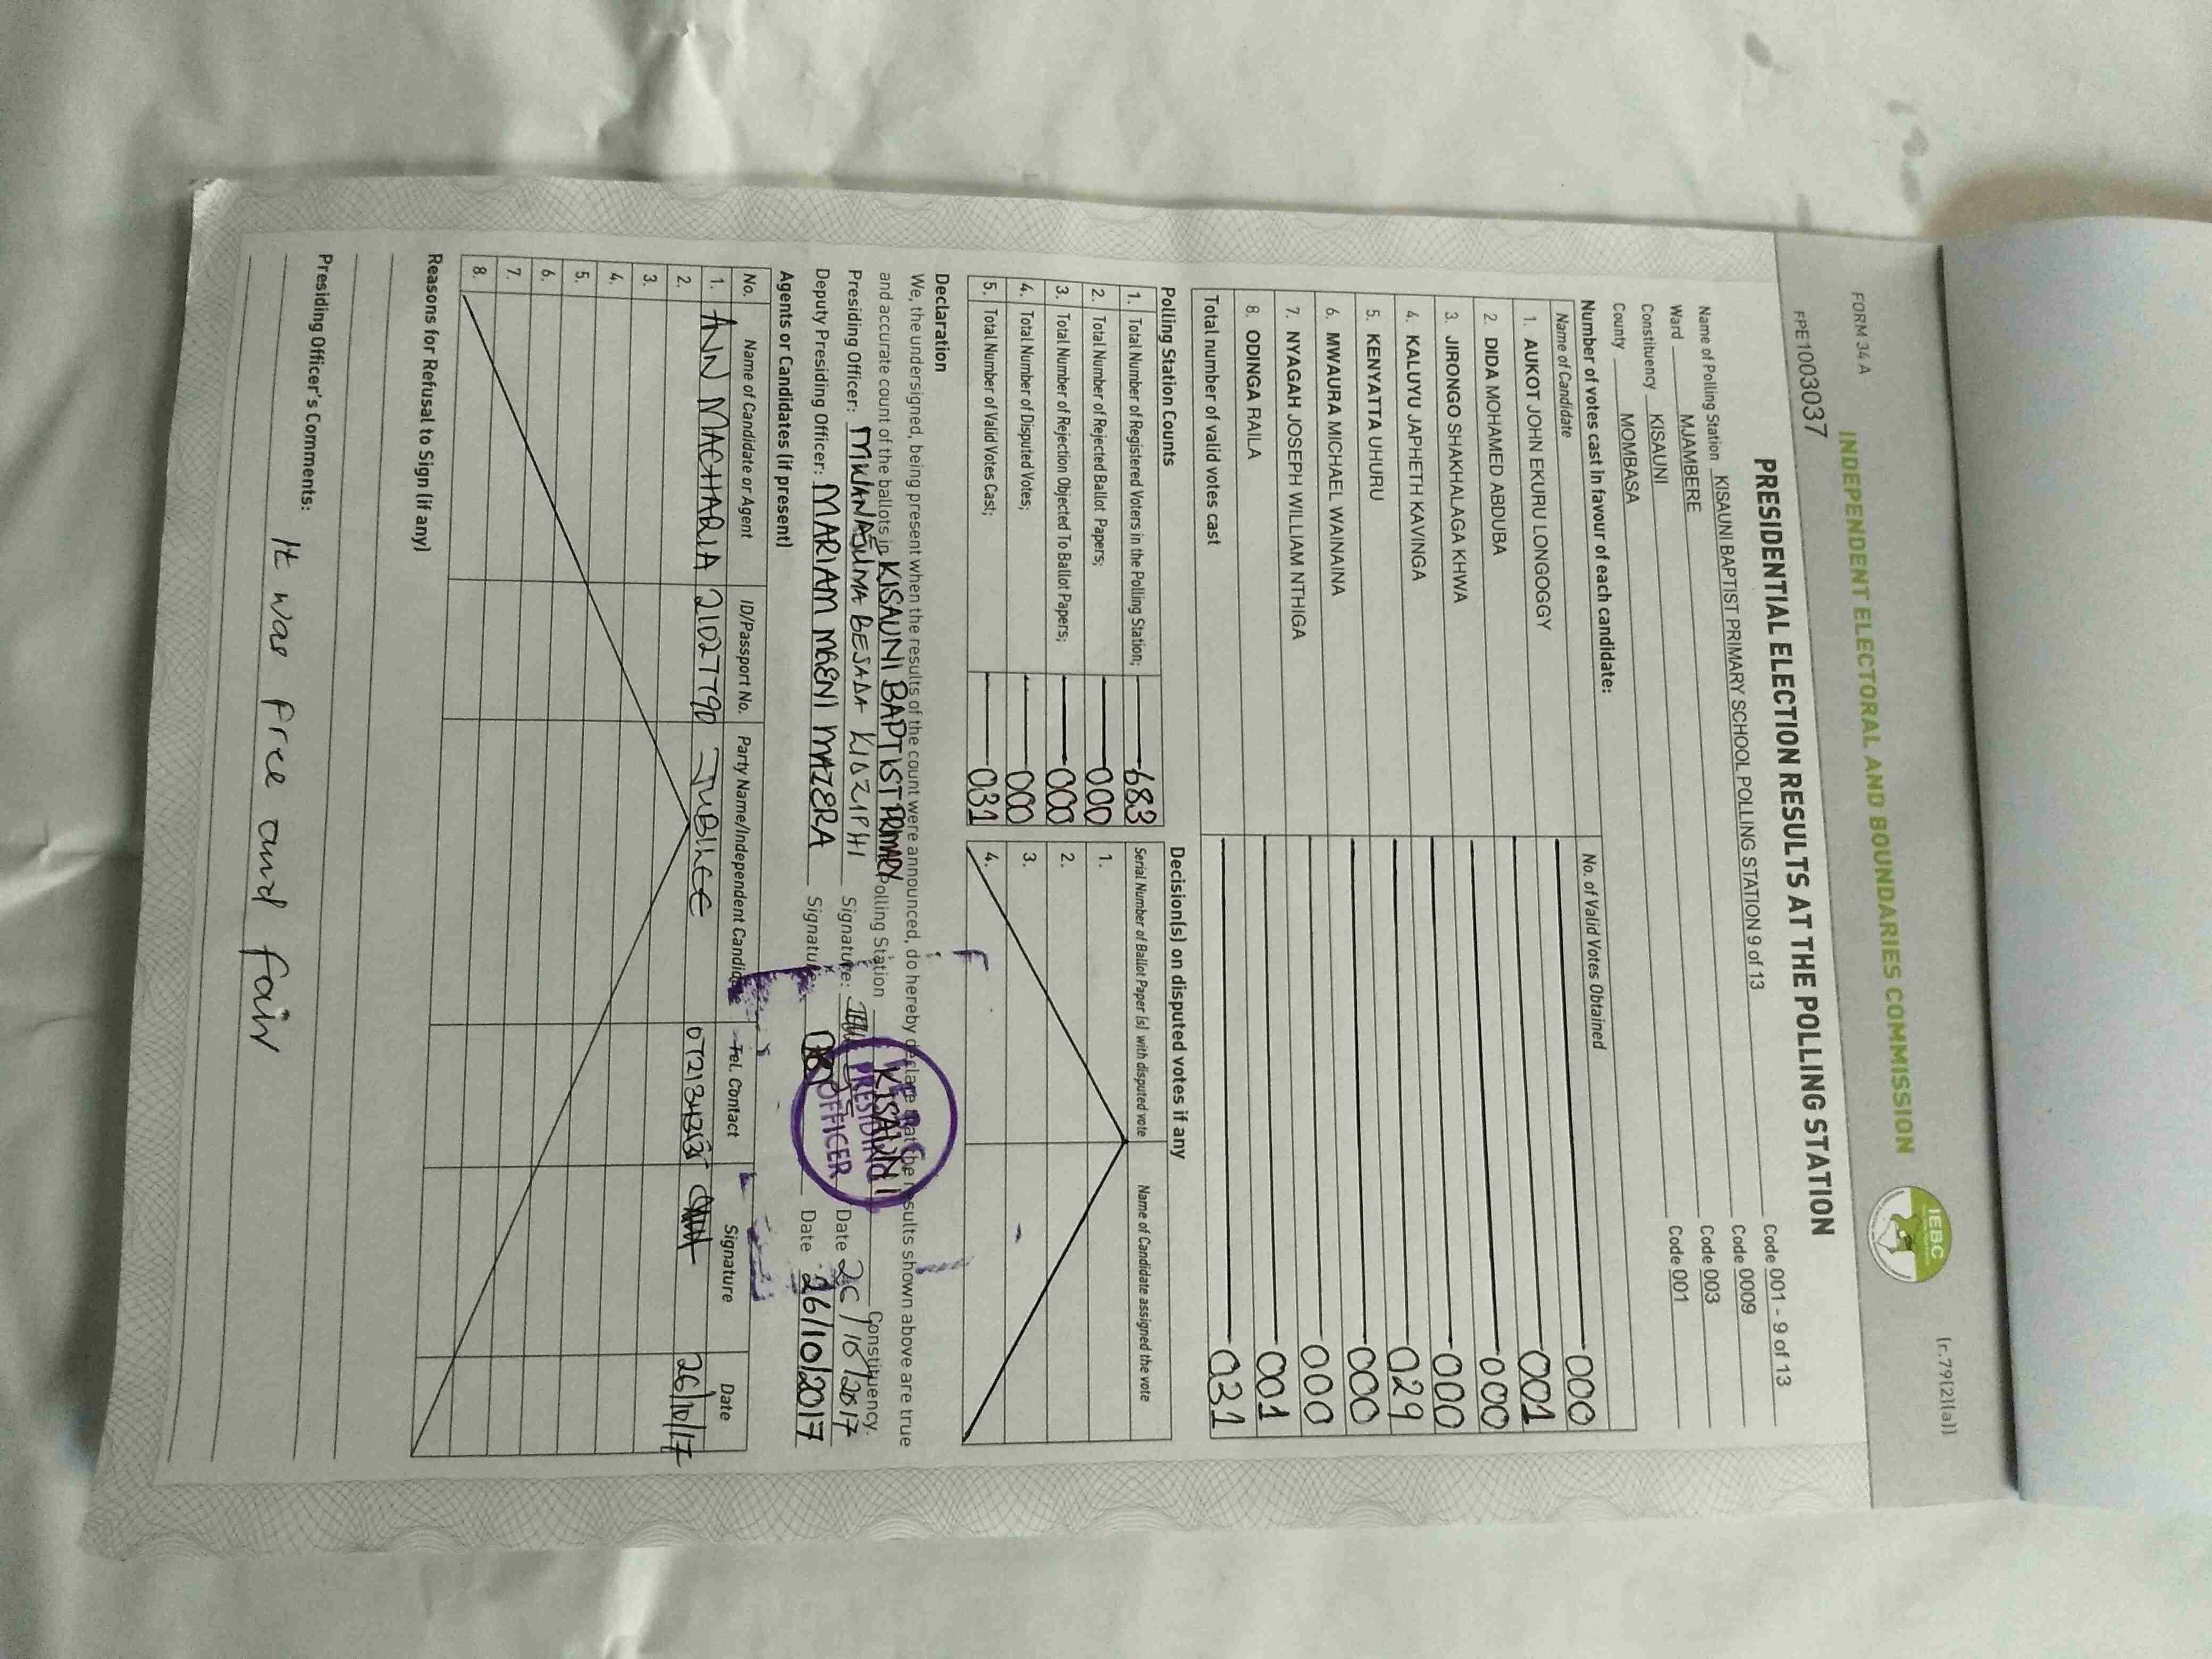 FORM 34 A
(r.79(2)(a))
INDEPENDENT ELECTORAL AND BOUNDARIES COMMISSION
IEBC
FPE1003037
PRESIDENTIAL ELECTION RESULTS AT THE POLLING STATION
Name of Polling Station KISAUNI BAPTIST PRIMARY SCHOOL POLLING STATION 9 of 13 Code 001 - 9 of 13
Ward MJAMBERE Code 0009
Constituency KISAUNI Code 003
County MOMBASA Code 001
Number of votes cast in favour of each candidate:
Name of Candidate No. of Valid Votes Obtained
1. AUKOT JOHN EKURU LONGOGGY 000
2. DIDA MOHAMED ABDUBA 001
3. JIRONGO SHAKHALAGA KHWA 000
4. KALUYU JAPHETH KAVINGA 000
5. KENYATTA UHURU 029
6. MWAURA MICHAEL WAINAINA 000
7. NYAGAH JOSEPH WILLIAM NTHIGA 000
8. ODINGA RAILA 001
Total number of valid votes cast 031
Polling Station Counts
1. Total Number of Registered Voters in the Polling Station; 683
2. Total Number of Rejected Ballot Papers; 000
3. Total Number of Rejection Objected To Ballot Papers; 000
4. Total Number of Disputed Votes; 000
5. Total Number of Valid Votes Cast; 031
Decision(s) on disputed votes if any
Serial Number of Ballot Paper (s) with disputed vote Name of Candidate assigned the vote
1.
2.
3.
4.
Declaration
We, the undersigned, being present when the results of the count were announced, do hereby declare that the results shown above are true
and accurate count of the ballots in KISAUNI BAPTIST PRIMARY Polling Station KISAUNI Constituency.
Presiding Officer: MWANASUMA BESADA KIDZIPHI Signature: Date 26/10/2017
Deputy Presiding Officer: MARIAM MGENI MAZERA Signature: Date 26/10/2017
PRESIDING
OFFICER
Agents or Candidates (if present)
No. Name of Candidate or Agent ID/Passport No. Party Name/Independent Candidate Tel. Contact Signature Date
1. ANN MACHARIA 21027790 JUBILEE 26/10/17
2.
3.
4.
5.
6.
7.
8.
Reasons for Refusal to Sign (if any)
Presiding Officer's Comments:
It was free and fair